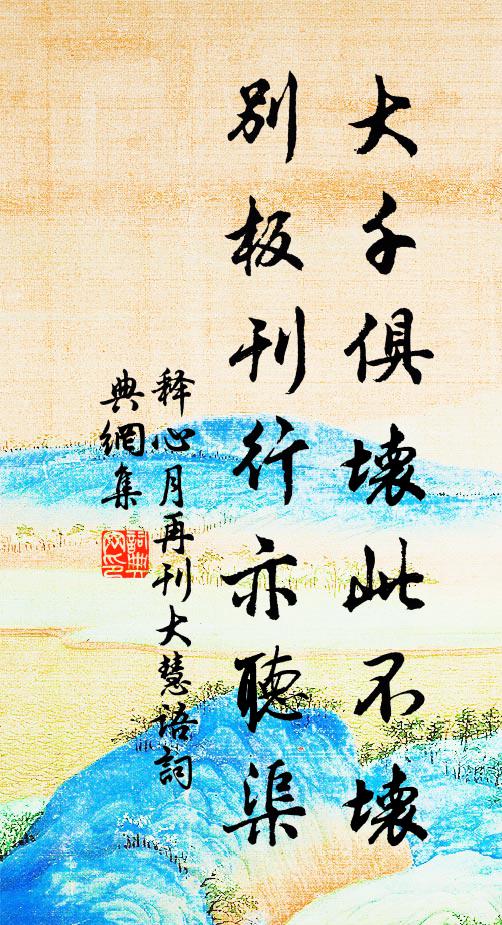 大千俱壞此不壞
別板刊行亦聽渠
释心月再刊大慧语詞
典網集
詞典